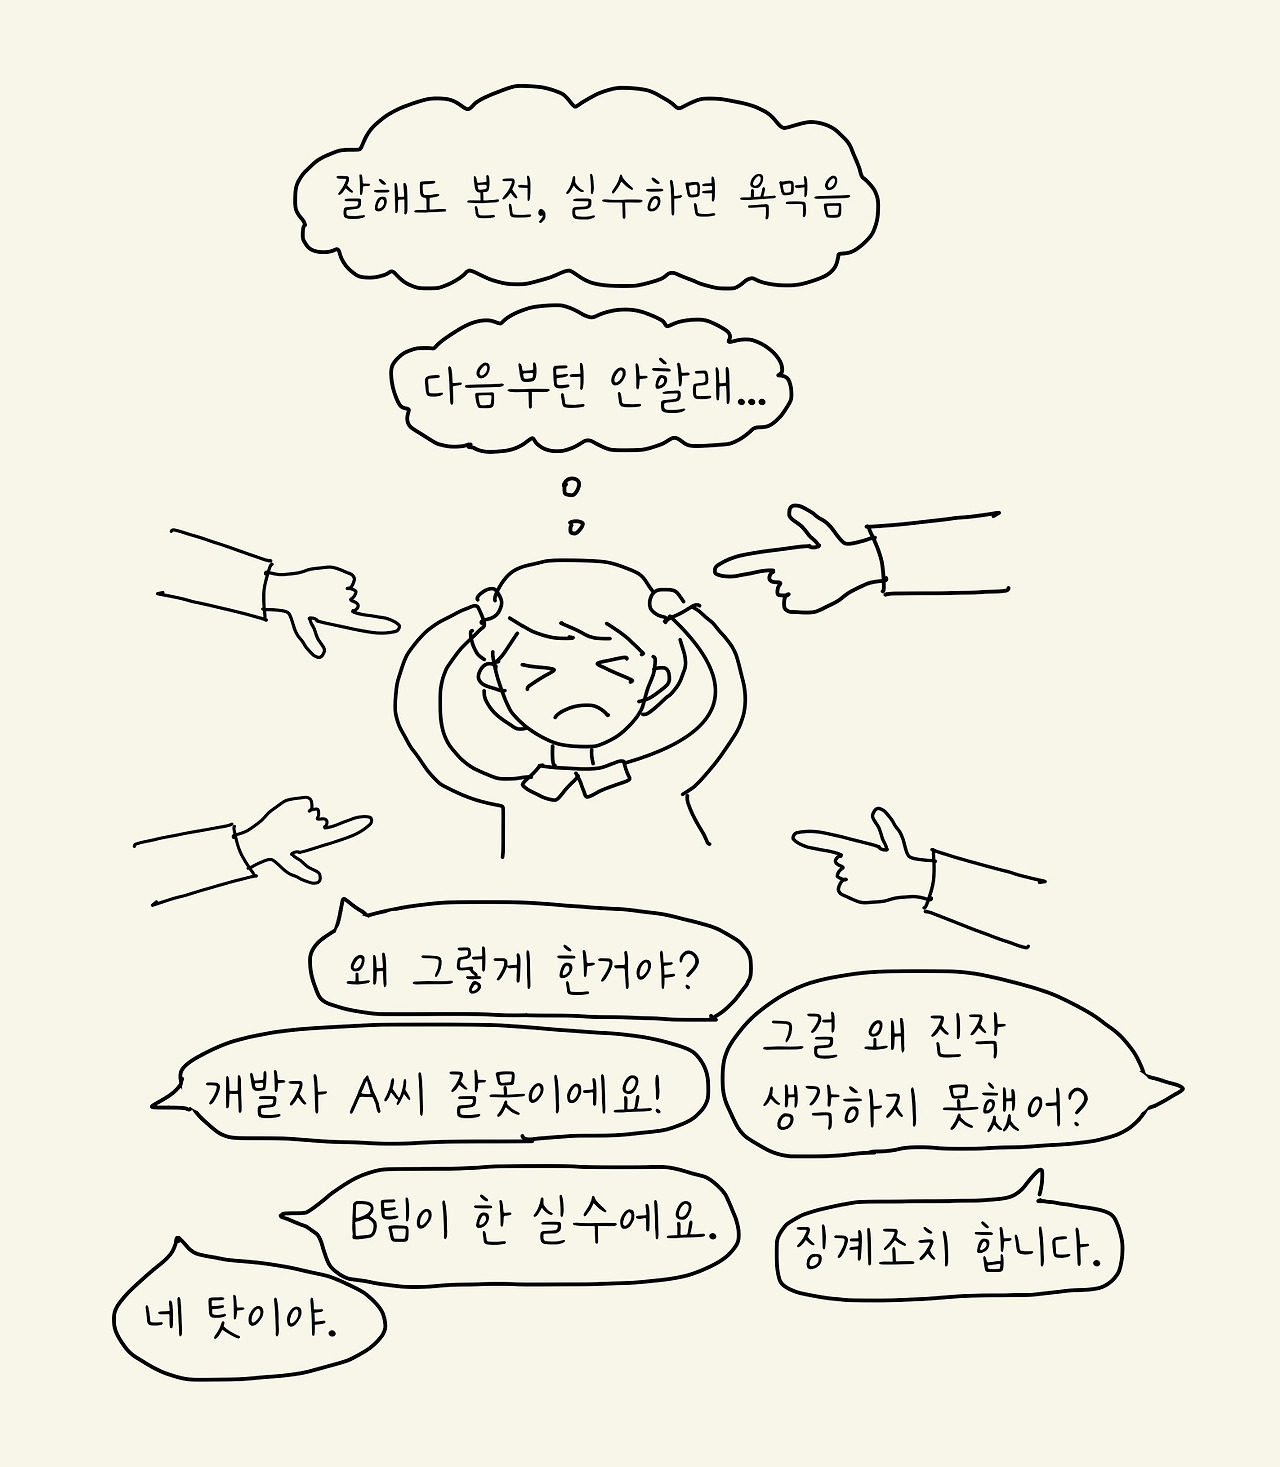 잘해도 본전, 실수하면 욕먹음
다음부턴 안할래...
왜 그렇게 한거야?
그걸 왜 진작
생각하지 못했어?
개발자 A씨 잘못이에요!
B팀이 한 실수에요.
징계조치 합니다.
네 탓이야.